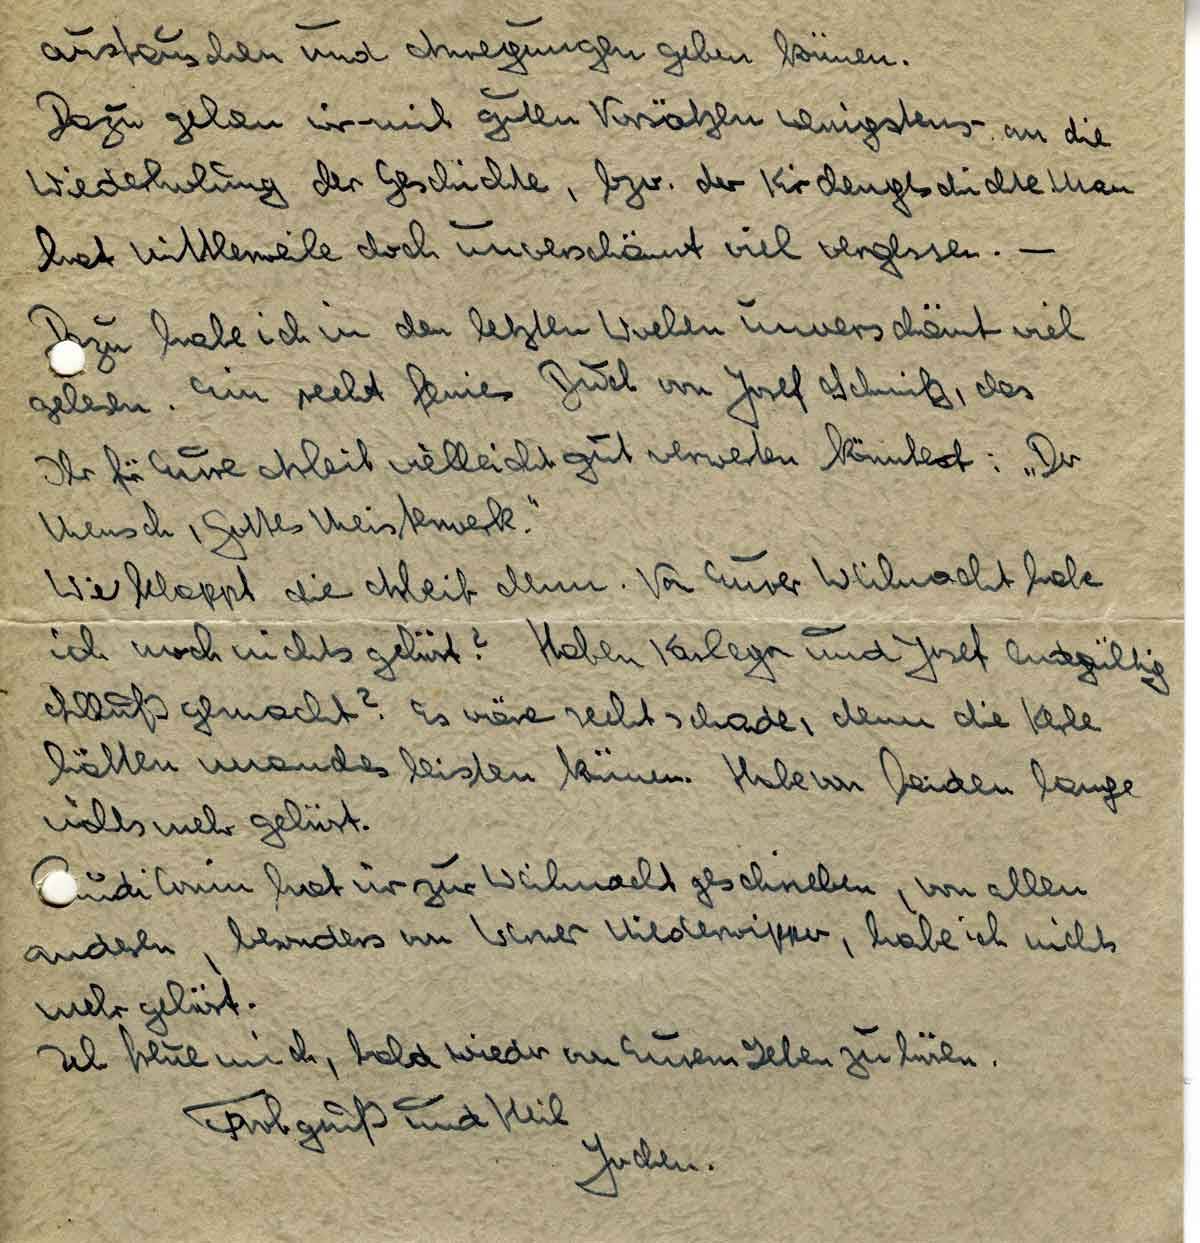 austauschen und Anregungen geben können.
Dazu gehen wir mit guten Vorsätzen wenigstens an die
Wiederholung der Geschichte, bzw. der Kirchengeschichte. Man
hat mittlerweile doch unverschämt viel vergessen. —
Dazu habe ich in den letzten Wochen unverschämt viel
gelesen. Ein recht feines Buch von Josef, das
Ihr für Eure Arbeit vielleicht gut verwerten könntest: „Der
Mensch, Gottes Meisterwerk."
Wie klappt die Arbeit denn. Von Eurer Weihnacht habe
ich noch nichts gehört? Haben und Josef endgültig
Schluß gemacht? Es wäre recht schade, denn die Kerle
hätten manches leisten können. Habe von beiden lange
nichts mehr gehört.
hat mir zur Weihnacht geschrieben, von allen
anderen, besonders von Werner, habe ich nichts
mehr gehört.
Ich freue mich, bald wieder von Eurem Leben zu hören.
Frohgruß und Heil
Jochen.